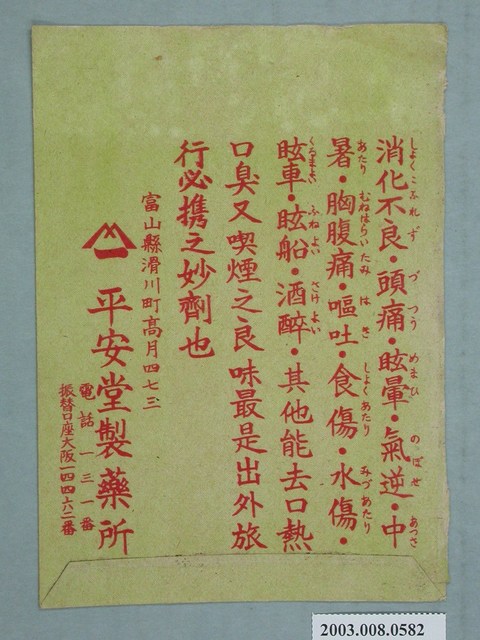 消化不良・頭痛・眩暈・氣逆・中
しよくこなれず づつう めまひ のぼせ あつさ
暑・胸腹痛・嘔吐・食傷・水傷・
あたり むねはらいたみ はき しよくあたり みづあたり
眩車・眩船・酒醉・其他能去口熱
くるまよい ふねよい さけよい
口臭又喫煙之良味最是出外旅
行必携之妙劑也
富山縣滑川町高月四七三
一 平安堂製藥所
電話一三一番
振替口座大阪一四四六六二番
2003.008.0582